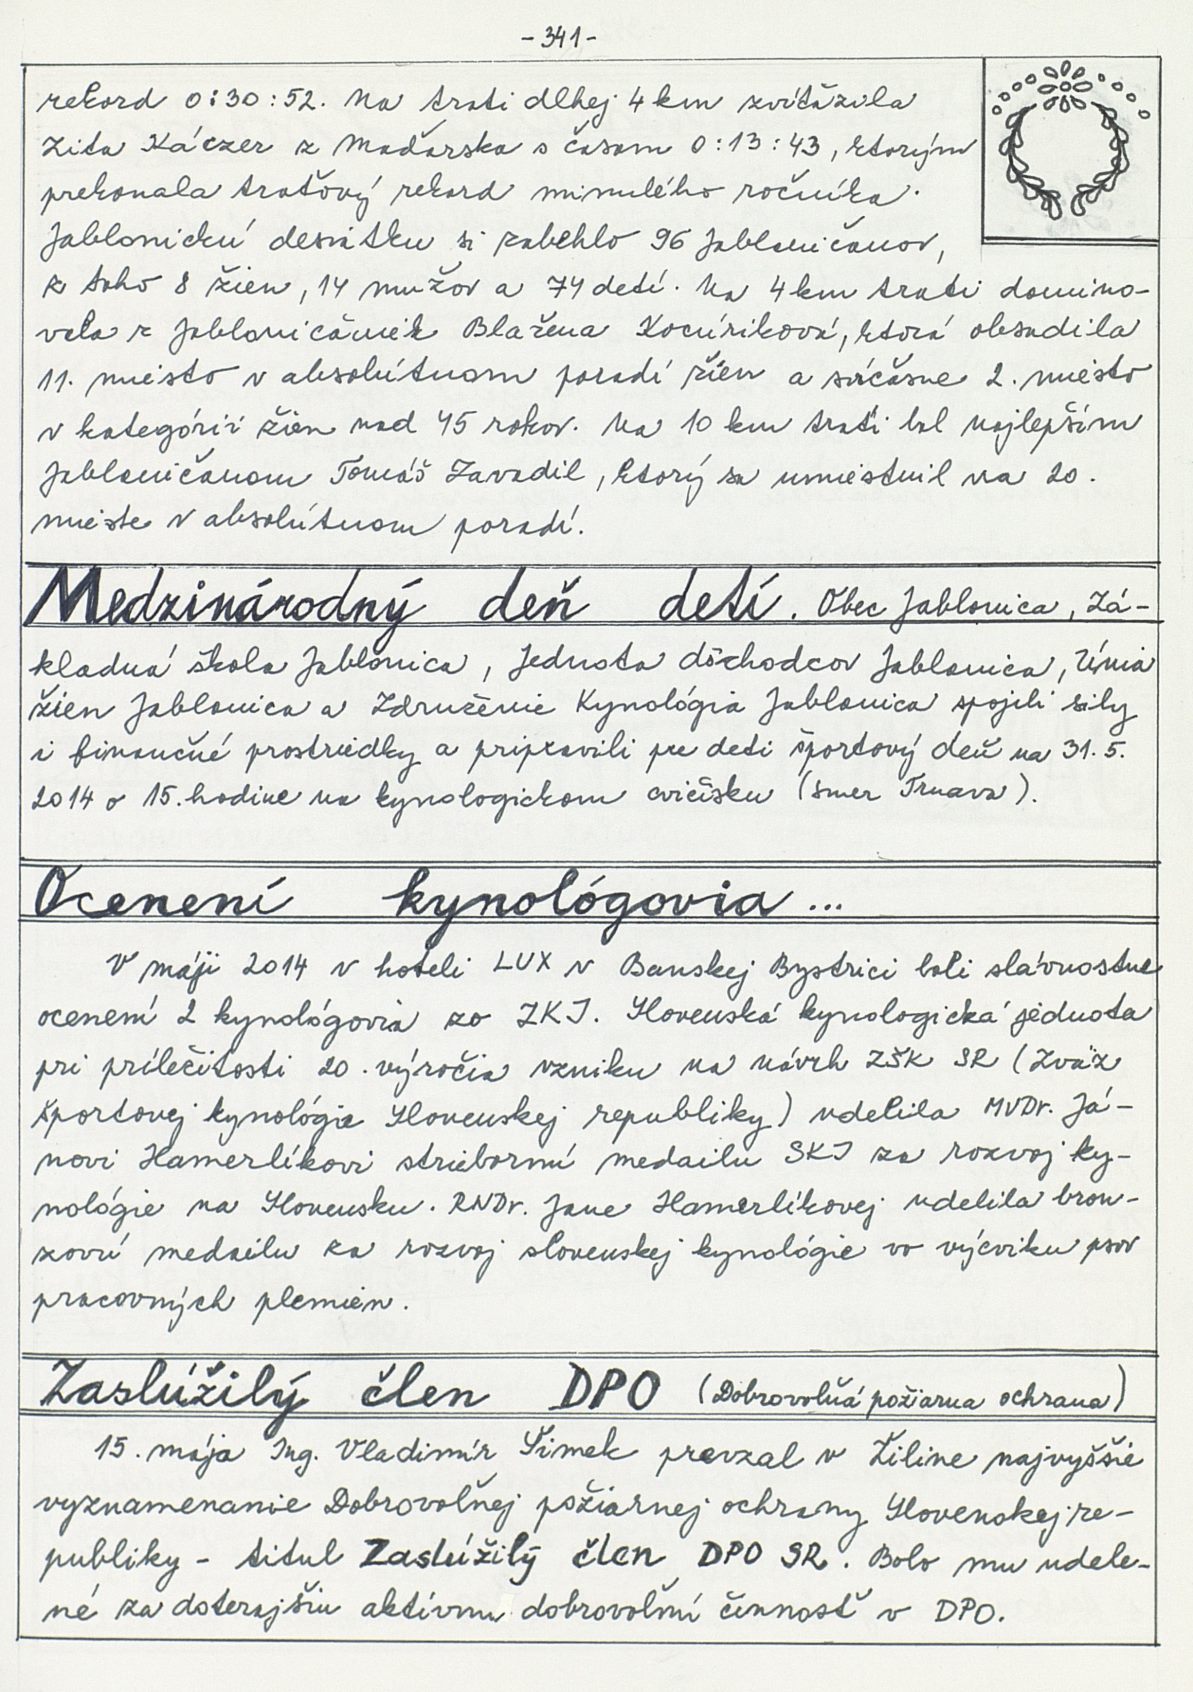 - 341 -
rekord 0:30:52. Na trati dlhej 4 km zvíťazila
Zita Káczer z Maďarska s časom 0:13:43, ktorým
prekonala traťový rekord minulého ročníka.
Jablonickú desiatku si zabehlo 96 Jabloničanov,
z toho 8 žien, 14 mužov a 74 detí. Na 4 km trati domino-
vala z Jabloničaniek Blažena Kocúriková, ktorá obsadila
11. miesto v absolútnom poradí žien a súčasne 2. miesto
v kategórii žien nad 45 rokov. Na 10 km trati bol najlepším
Jabloničanom Tomáš Zavadil, ktorý sa umiestnil na 20.
mieste v absolútnom poradí.
Medzinárodný deň detí. Obec Jablonica, Zá-
kladná škola Jablonica, Jednota dôchodcov Jablonica, Únia
žien Jablonica a Združenie Kynológia Jablonica spojili sily
i finančné prostriedky a pripravili pre deti športový deň na 31.5.
2014 o 15. hodine na kynologickom cvičisku (smer Trnava).
Ocenení kynológovia...
V máji 2014 v hoteli LUX v Banskej Bystrici boli slávnostne
ocenení 2 kynológovia zo ZKJ. Slovenská kynologická jednota
pri príležitosti 20. výročia vzniku na návrh ZŠK SR (Zväz
športovej kynológie Slovenskej republiky) udelila MVDr. Já-
novi Hamerlíkovi striebornú medailu SKJ za rozvoj ky-
nológie na Slovensku. RNDr. Jane Hamerlíkovej udelila bron-
zovú medailu za rozvoj slovenskej kynológie vo výcviku psov
pracovných plemien.
Zaslúžilý člen DPO (Dobrovoľná požiarna ochrana)
15. mája Ing. Vladimír Šimek prevzal v Žiline najvyššie
vyznamenanie Dobrovoľnej požiarnej ochrany Slovenskej re-
publiky - titul Zaslúžilý člen DPO SR. Bolo mu udele-
né za doterajšiu aktívnu dobrovoľnú činnosť v DPO.